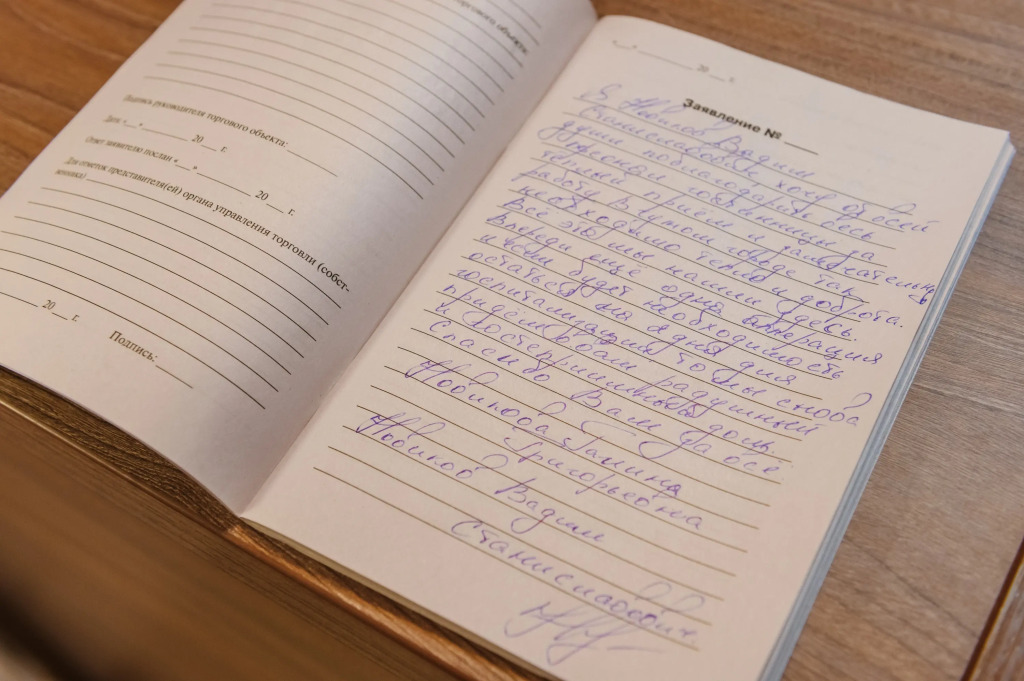 торгового объекта
Подпись руководителя торгового объекта:
Дата «__» ________ 20 __ г.
Ответ заявителю послан «__» ________ 20 __ г.
Для отметок представителя(ей) органа управления торговли (собст-
венника)
20 __ г.
Подпись:
«__» ________ 20 __ г.
Заявление № ____
Я Новиков Вадим
Станиславович хочу от всей
души поблагодарить весь
персонал гостиницы за
тёплый приём и замечательную
работу. В чужом городе так
необходимо тепло и доброта.
Всё это мы нашли здесь.
Впереди ещё одна операция
и если будет необходимость
остаться на 2 дня для
госпитализации, то мы снова
придём в Вам радушный
и гостеприимный дом.
Спасибо Вам за все
Новикова Галина
Григорьевна
Новиков Вадим
Станиславович.